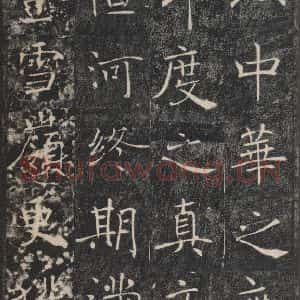 中華之
印度之真文
恒河終期滿
登雪嶺更獲
Shufawang.CN